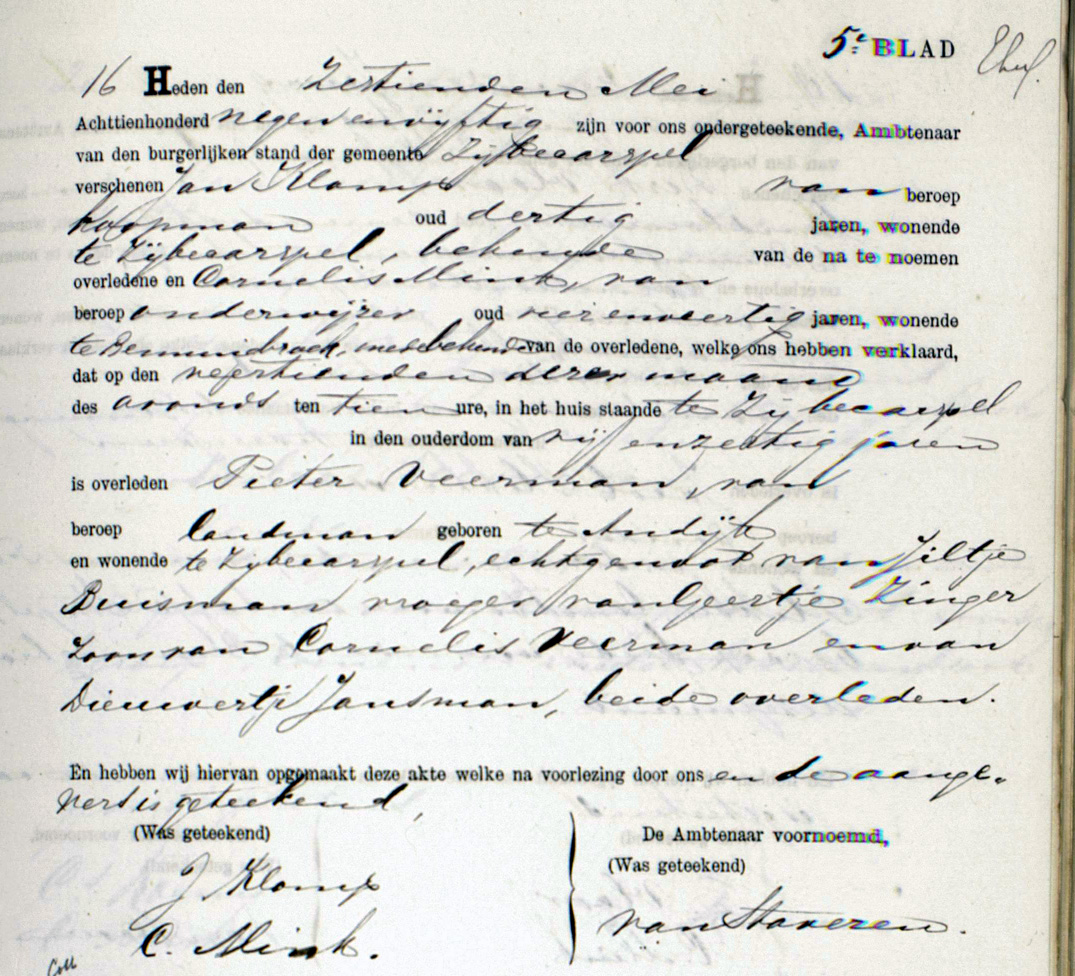 5e BLAD
16 Heden den Zestienden Mei
Achttienhonderd negenenvijftig zijn voor ons ondergeteekende, Ambtenaar
van den burgerlijken stand der gemeente Zijbecarspel
verschenen Jan Klomp van beroep
koopman oud dertig jaren, wonende
te Zijbecarspel bekende van de na te noemen
overledene en Cornelis Mink, van
beroep onderwijzer oud vierenveertig jaren, wonende
te Benningbroek, mede bekende van de overledene, welke ons hebben verklaard,
dat op den veertienden dezer maand
des avonds ten tien ure, in het huis staande te Zijbecarspel
in den ouderdom van vijfenzestig jaren
is overleden Pieter Veerman, van
beroep landman geboren te Andijk
en wonende te Zijbecarspel, echtgenoot van Jiltje
Buisman vroeger van Geertje Zinger
Zoon van Cornelis Veerman en van
Dieuwertje Jansman, beide overleden.
En hebben wij hiervan opgemaakt deze akte welke na voorlezing door ons en de aange-
vers is geteekend,
(Was geteekend) De Ambtenaar voornoemd,
(Was geteekend)
J Klomp
C. Mink.
van Staveren.